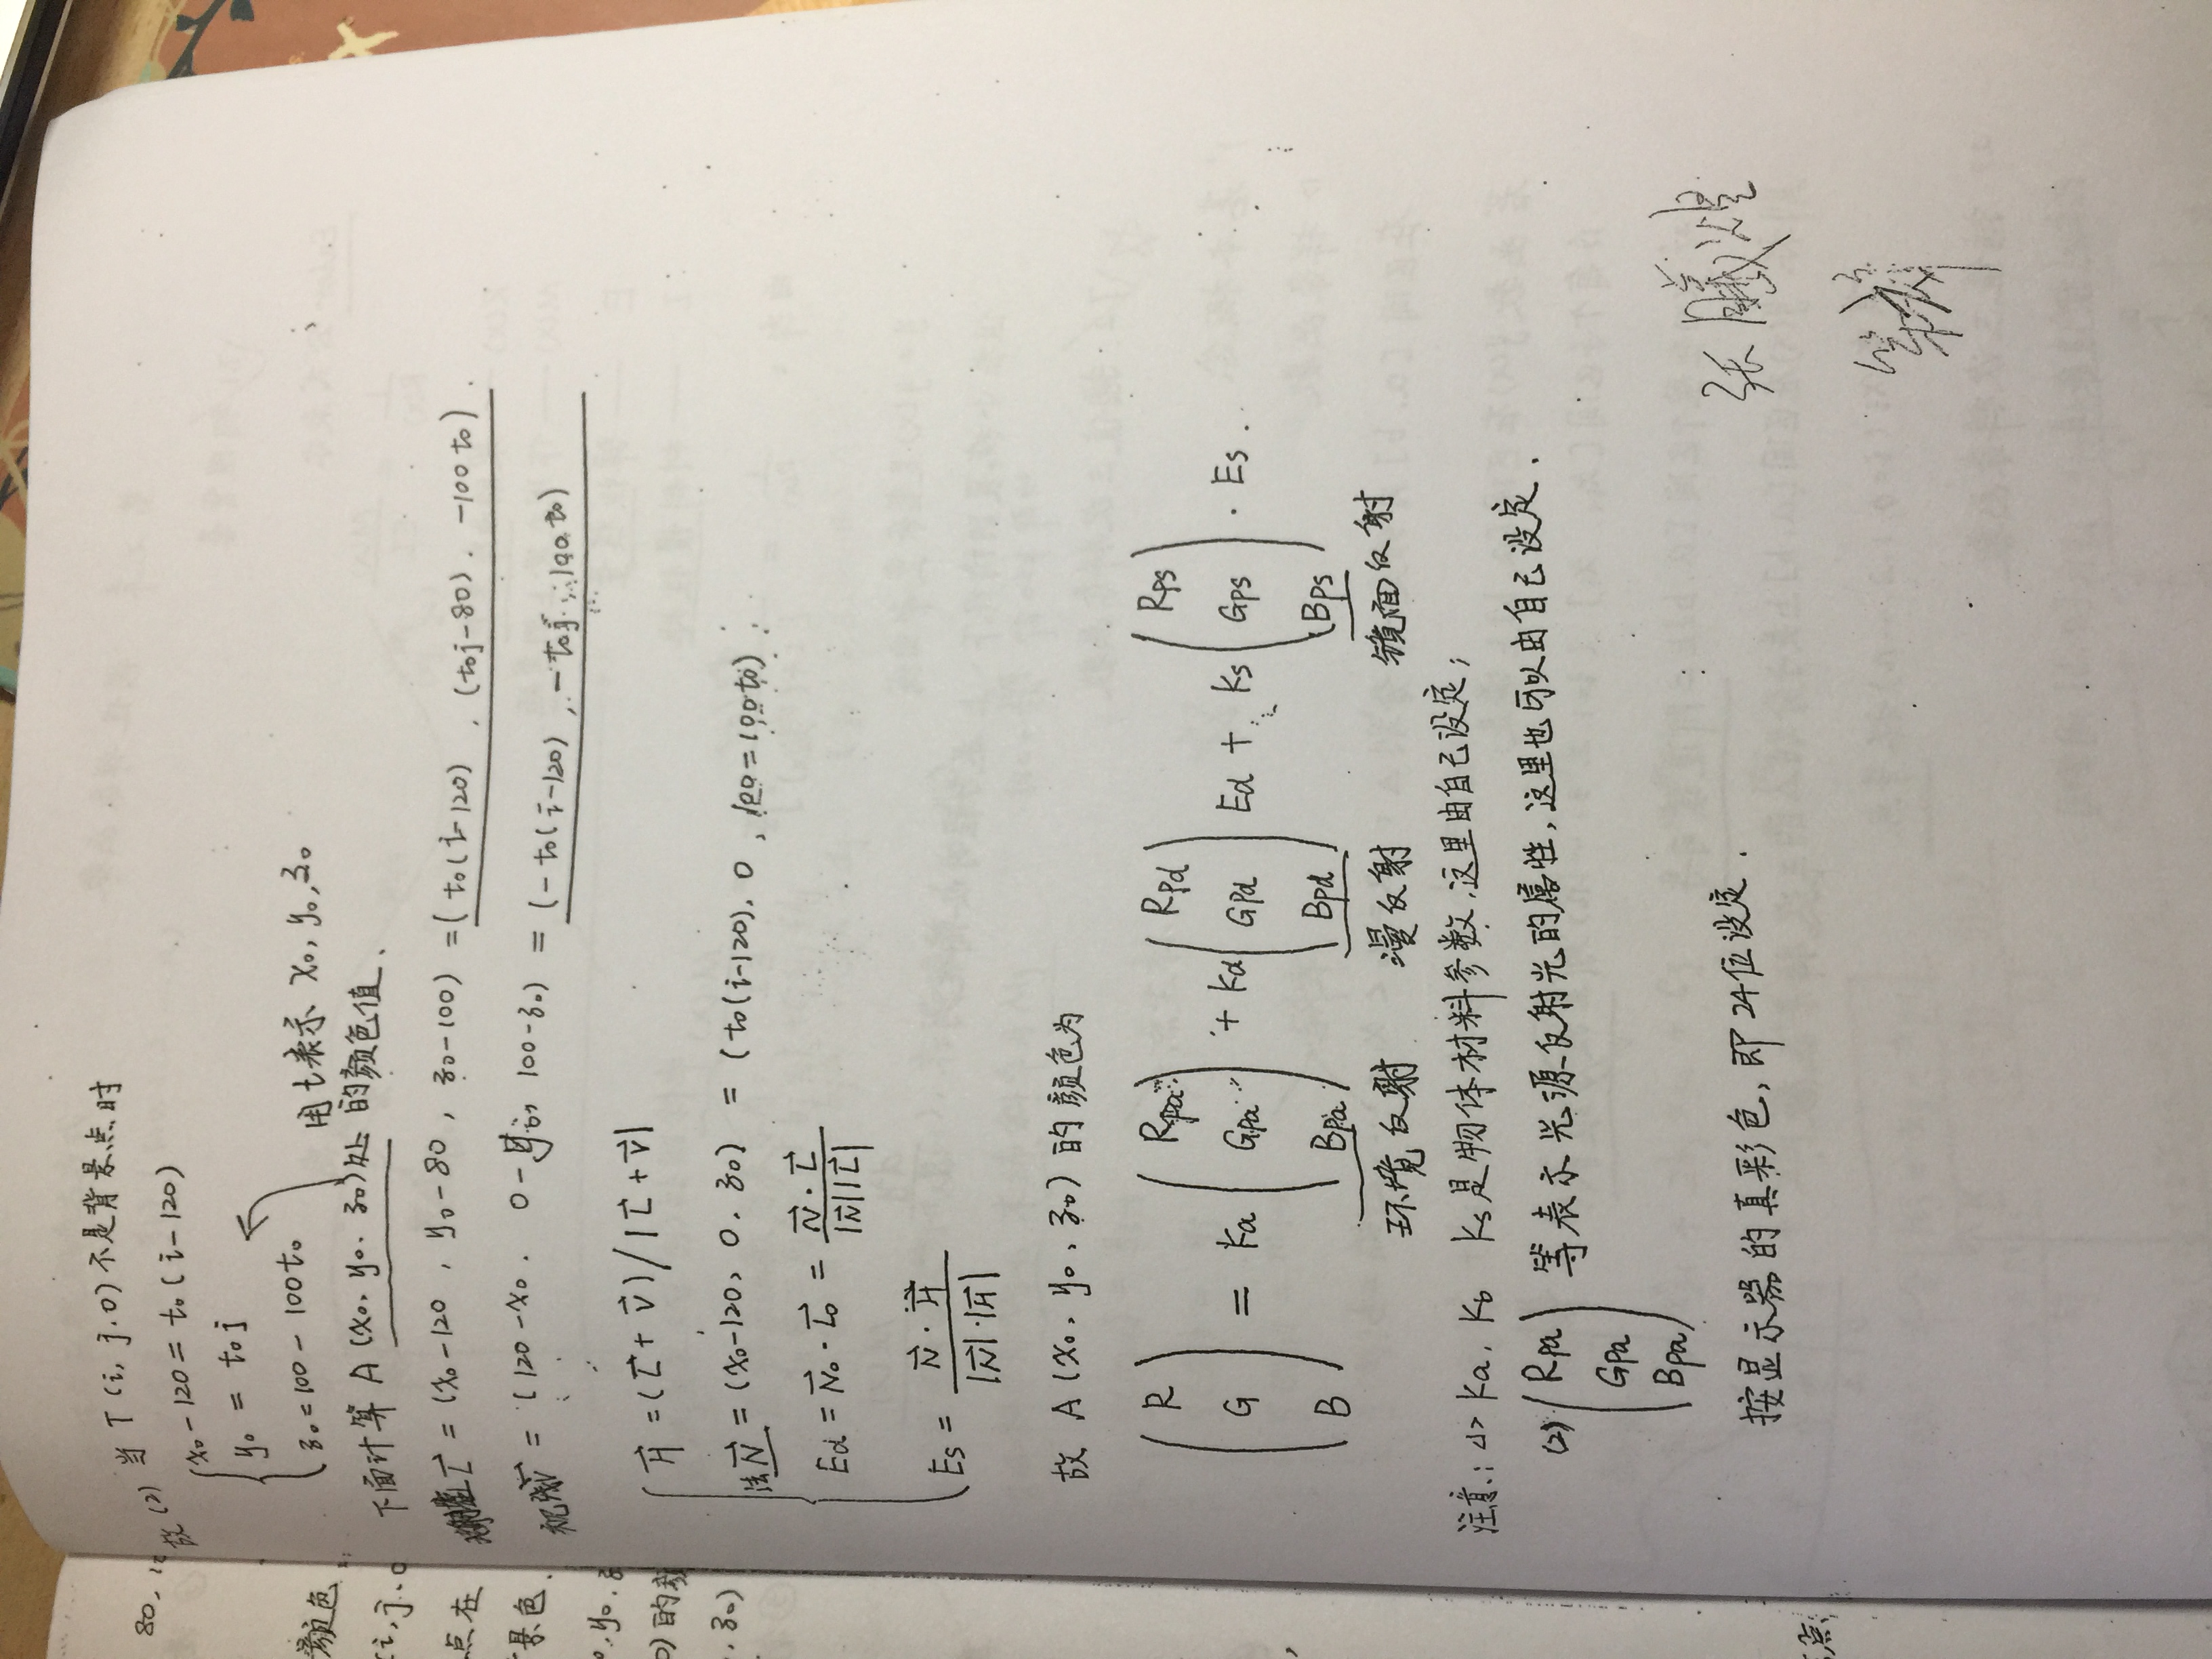 故(2) 当 T(i, j.0) 不是背景点时
x₀-120 = t₀(i-120)
y₀ = t₀j
z₀ = 100 - 100t₀
用t表示 x₀, y₀, z₀
下面计算 A (x₀. y₀. z₀)处 的颜色值.
L⃗ = (x₀-120, y₀-80, z₀-100) = (t₀(i-120), (t₀j-80). -100t₀).
视线V⃗ = (120-x₀. 0-y₀, 100-z₀) = (-t₀(i-120), -t₀j, 100t₀)
H⃗ = (L⃗ + V⃗) / |L⃗ + V⃗|
法N⃗ = (x₀-120, 0. z₀) = (t₀(i-120). 0, 100-100t₀)
Ed = N⃗₀ · L⃗₀ = N⃗ · L⃗ / |N⃗||L⃗|
Es = N⃗ · H⃗ / |N⃗|·|H⃗|
故 A(x₀, y₀, z₀) 的颜色为
(R G B) = Ka (Rpa Gpa Bpa) + Kd (Rpd Gpd Bpd) Ed + Ks (Rps Gps Bps) · Es.
环境反射 漫反射 镜面反射
注意: <1> Ka, Kb Ks是物体材料参数,这里由自己设定;
(2) (Rpa Gpa Bpa) 等表示光源反射光的属性,这里也可以由自己设定.
按显示器的真彩色,即24位设定.
张曦煌
80, 12
颜色
(i, j.0
点在
景色.
y₀. z
0)的颜
. z₀)
点